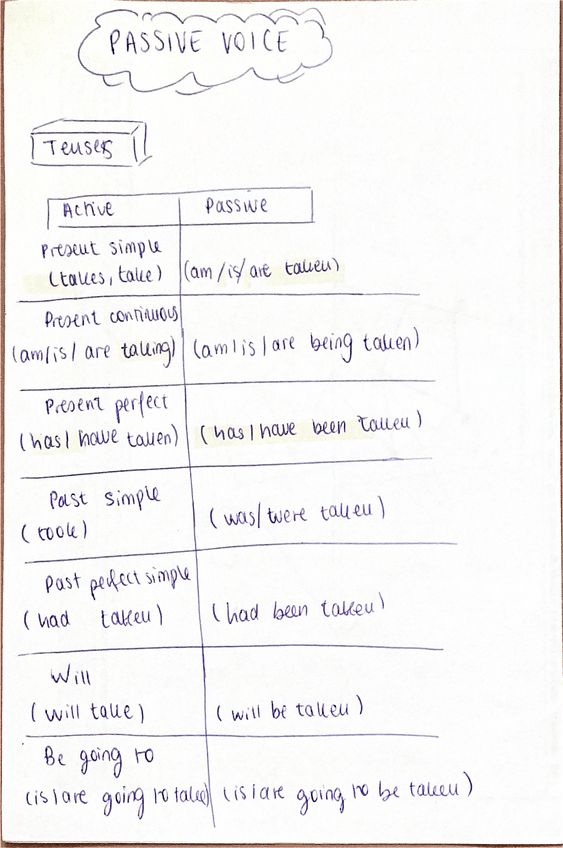 PASSIVE VOICE
Tenses
Active Passive
Present simple
(takes, take) (am/is/are taken)
Present continuous
(am/is/are taking) (am/is/are being taken)
Present perfect
(has/have taken) (has/have been taken)
Past simple
(took) (was/were taken)
Past perfect simple
(had taken) (had been taken)
Will
(will take) (will be taken)
Be going to
(is/are going to take) (is/are going to be taken)